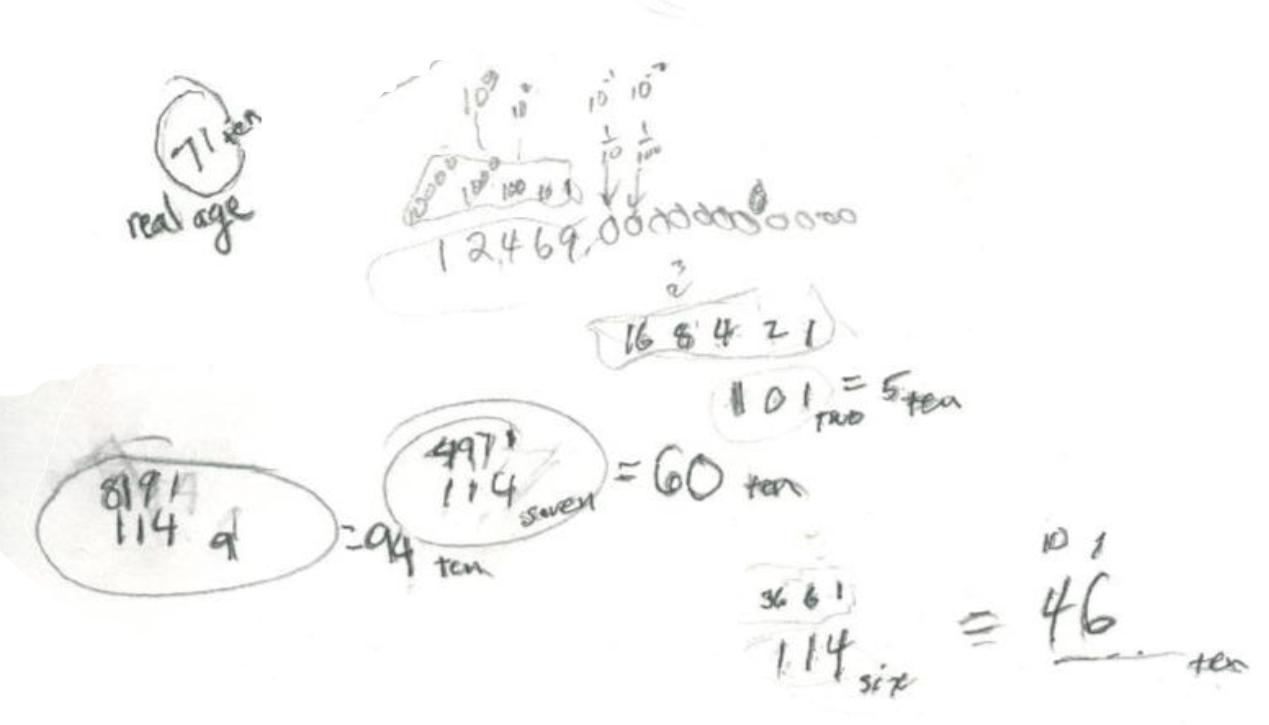 71 ten
real age
10³ 10² 10⁻¹ 10⁻²
1/10 1/100
10000 1000 100 10 1
12,469.0000000 00000
2³
16 8 4 2 1
101 TWO = 5 ten
81 9 1
114 9 = 94 ten
49 7 1
114 seven = 60 ten
36 6 1
114 six = 46 ten
10 1